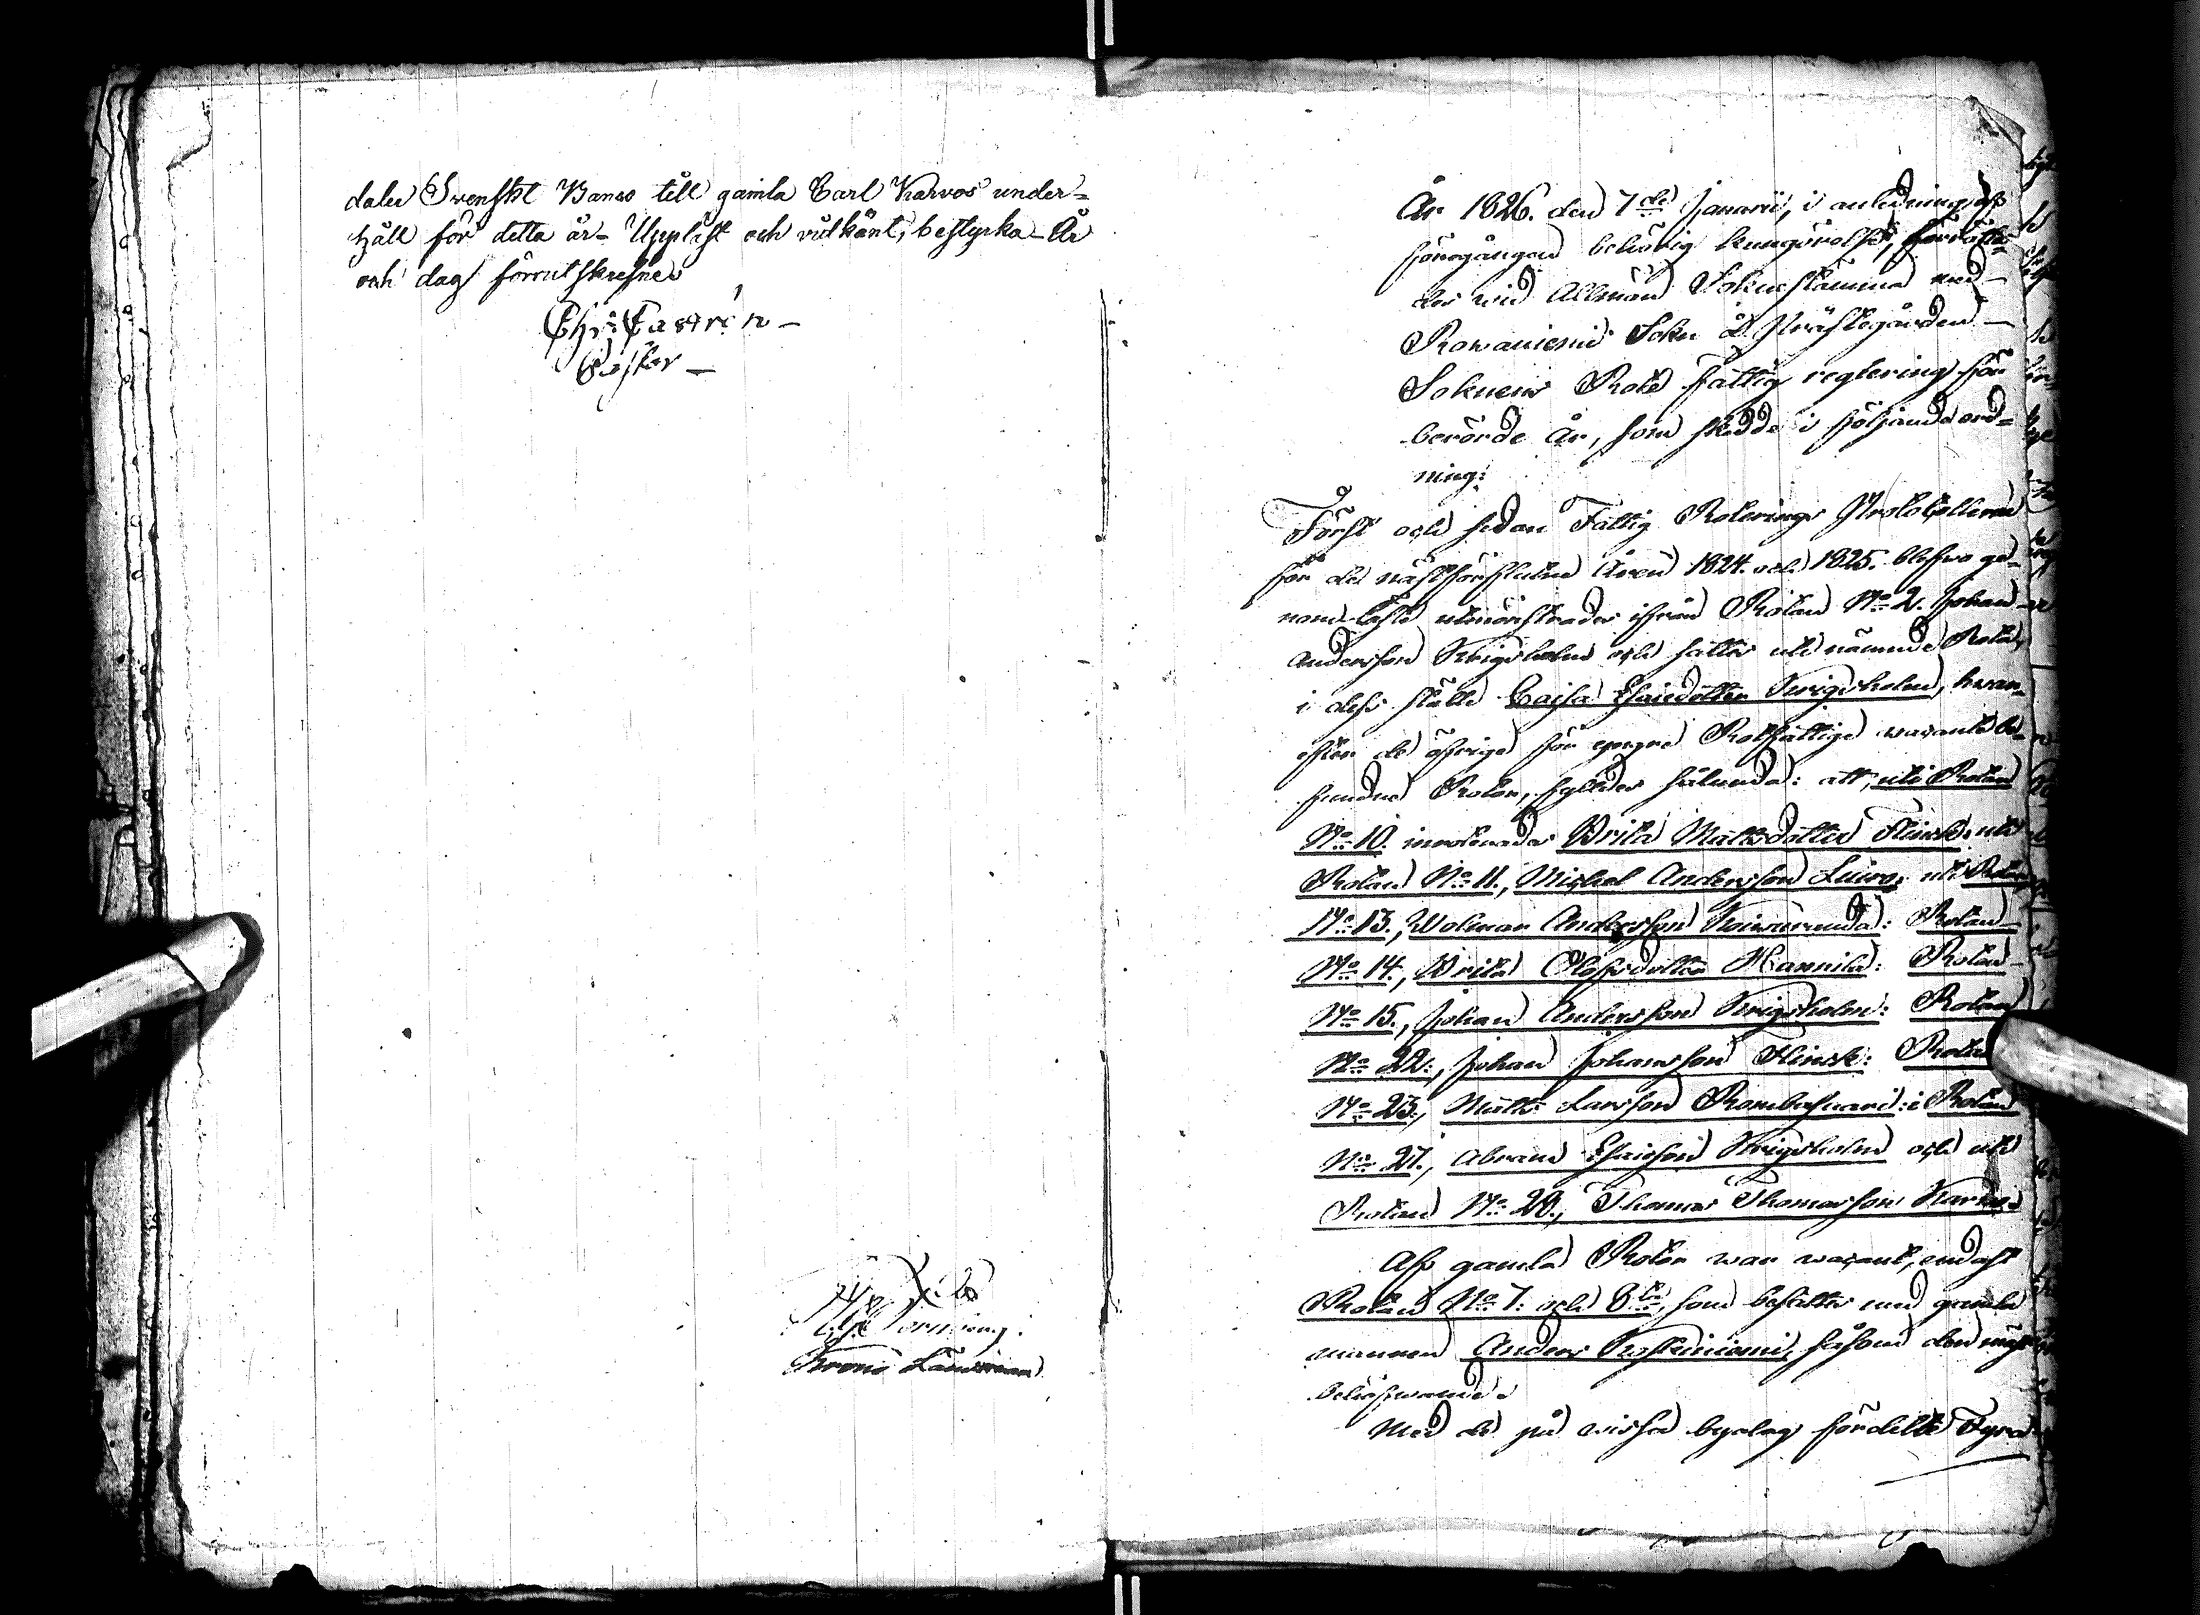 daler Svenskt Banco till gamla Carl Karvos under-
håll för detta år - Uppläst och vitkänt; bestyrka - År
och dag förrutskrefne
Chr: Castrén -
Pastor -
Krono Länsman
År 1826. den 7de Januarii, i anledning af
föregången behörig kungörelse, förrätta-
des wid Allmän Sokne stämma med
Rowaniemi Sokn å Prästegården
Soknens Rote fattig reglering för
berörde År, som skedde i följande ord-
ning:
Först och sedan Fattig Roterings Protocollerne
för de nästförflutne Åren 1824. och 1825. blefwo ge-
nom läste utmönstrades ifrån Rotan No 2. Johan
Andersson Krigsholm och sattes uti nämnde Rota,
i dess ställe Cajsa Esaiedotter Krigsholm, hwar-
efter de öfrige för egegne Rotfattige vacante be-
fundne Rotor, fyldes sålunda: att, uti Rotan
No 10. inroterades Brita Mattsdotter Flinck: uti
Rotan No 11., Michel Andersson Luiro: uti Rotan
No 13., Wolmar Andersson Koiwuranda: Rotan
No 14., Brita Olofsdotter Hannila: Rotan
No 15., Johan Andersson Krigsholm: Rotan
No 22., Johan Johansson Flinck: Rotan
No 23., Matts Larsson Rombasuari: i Rotan
No 27., Abram Esaiesson Krigsholm och uti
Rotan No 29., Thomas Thomasson
Af gamla Rotor war vacant, endast
Rotan No 7. och 8de, som besattes med gamla
mannen Anders Koskiniemi, såsom den mest
behöfwande.
Med de på vissa byalag fördelte Fyra